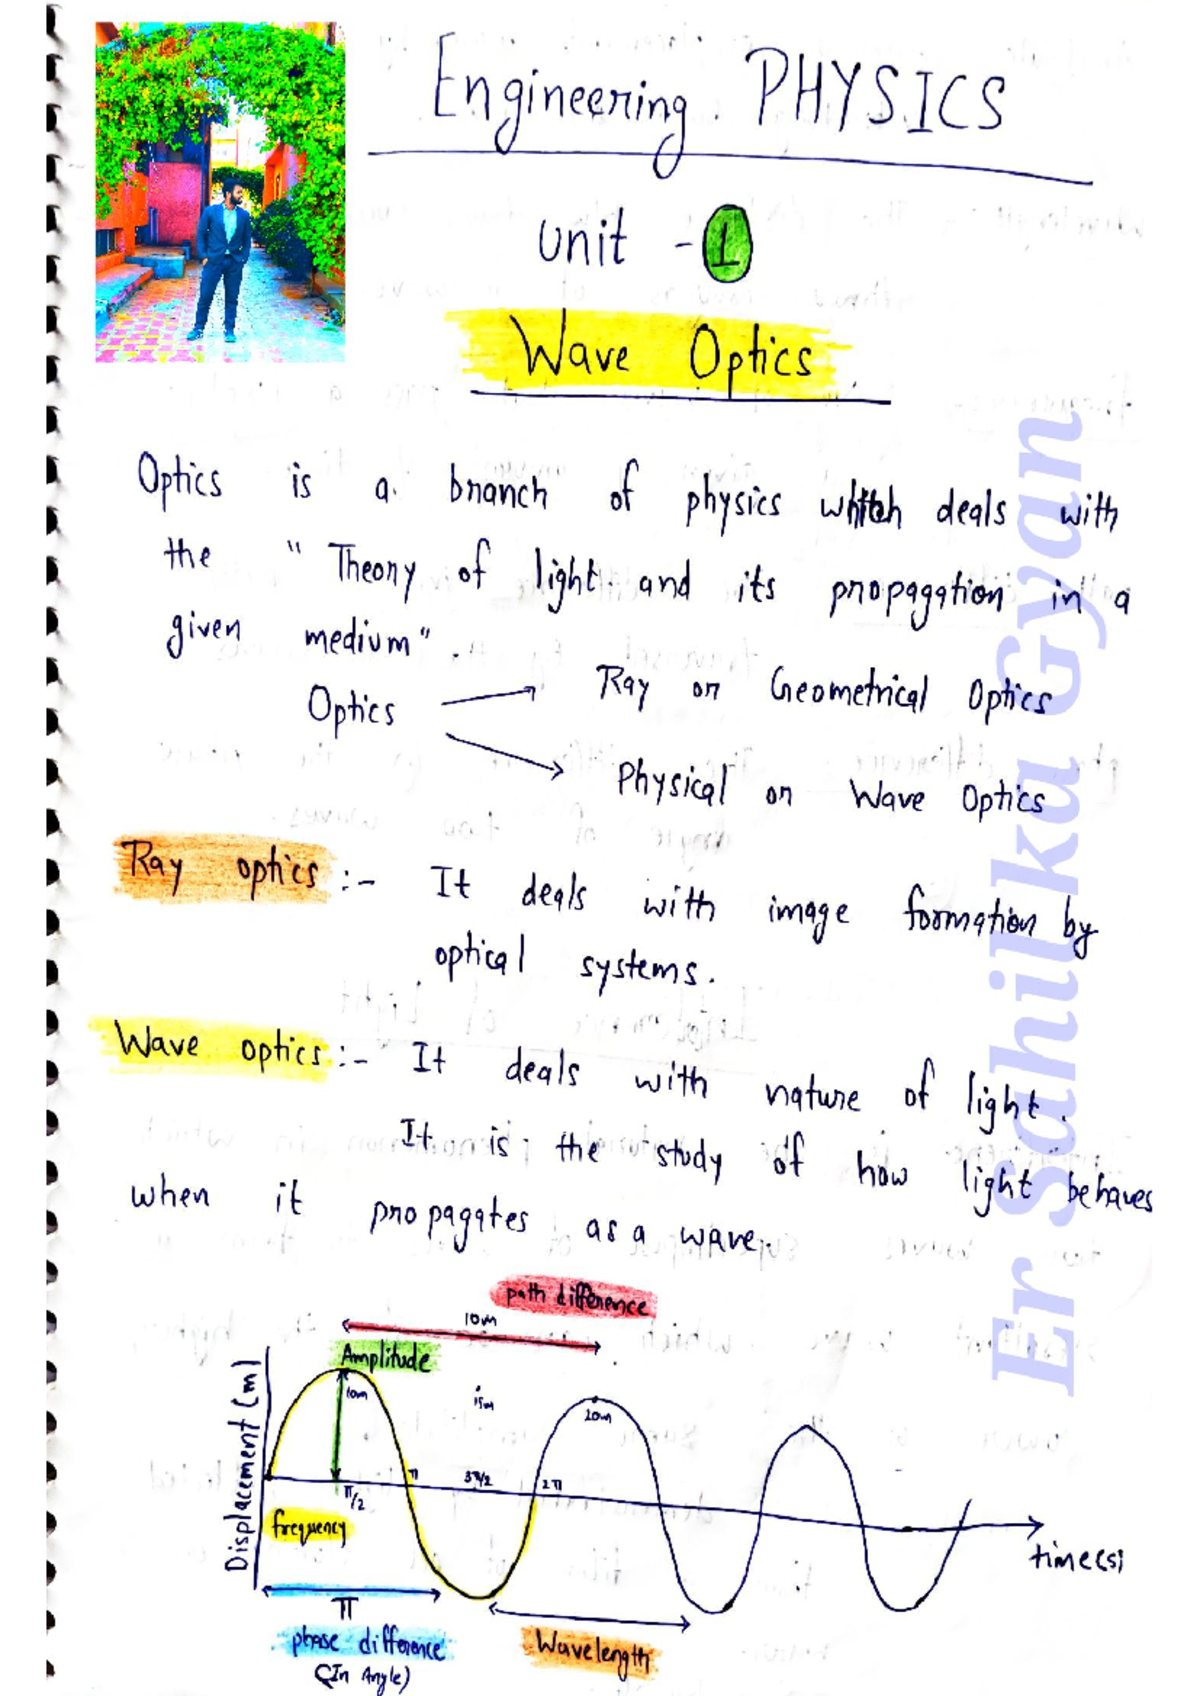 Engineering PHYSICS
unit - 1
Wave Optics
Optics is a branch of physics which deals with
the " Theory of light and its propagation in a
given medium".
Optics
Ray or Geometrical Optics
Physical or Wave Optics
Ray optics :- It deals with image formation by
optical systems.
Wave optics :- It deals with nature of light.
It is the study of how light behaves
when it propagates as a wave.
path difference
10m
Amplitude
10m
15m
20m
Displacement (m)
π/2
π
3π/2
2π
frequency
time(s)
π
phase difference
(In Angle)
Wavelength
Er Sahil ka Gyan